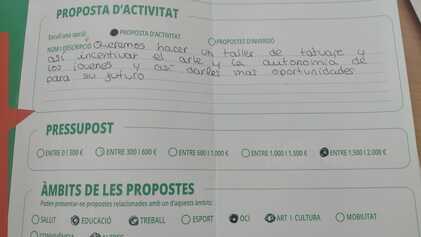 PROPOSTA D'ACTIVITAT
Escull una opció: PROPOSTA D'ACTIVITAT PROPOSTES D'INVERSIÓ
NOM I DESCRIPCIÓ: Queremos hacer un taller de tatuaje y
así incentivar el arte y la autonomía de
los jovenes y así darles mas oportunidades
para su futuro
PRESSUPOST
ENTRE 0 I 300 € ENTRE 300 I 600 € ENTRE 600 I 1.000 € ENTRE 1.000 I 1.500 € ENTRE 1.500 I 2.000 €
ÀMBITS DE LES PROPOSTES
Poden presentar-se propostes relacionades amb un d'aquests àmbits:
SALUT EDUCACIÓ TREBALL ESPORT OCI ART I CULTURA MOBILITAT